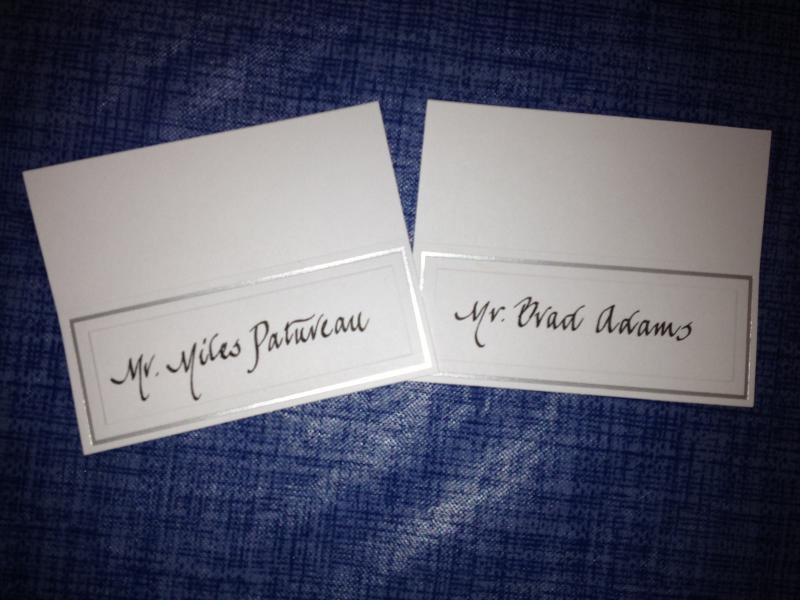 Mr. Miles Patureau
Mr. Brad Adams